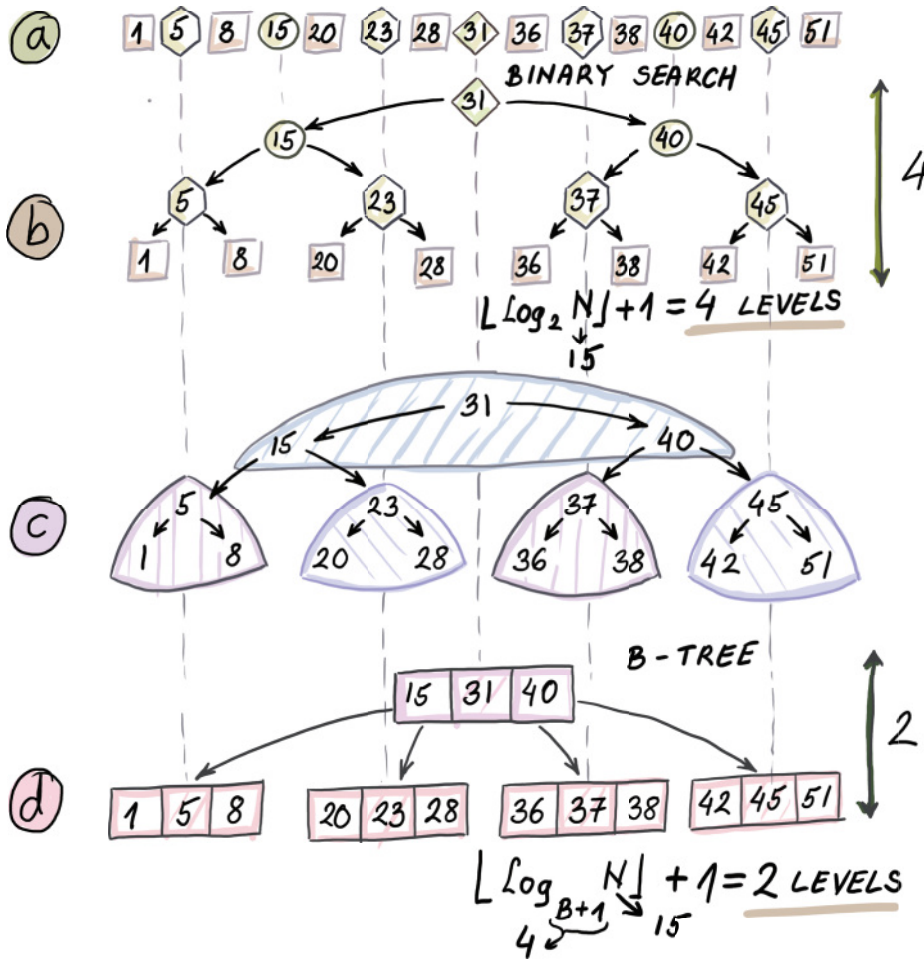 a 1 5 8 15 20 23 28 31 36 37 38 40 42 45 51
BINARY SEARCH
31
15 40
b 5 23 37 45
1 8 20 28 36 38 42 51
4
⌊Log₂ N⌋ + 1 = 4 LEVELS
15
31
15 40
c 5 23 37 45
1 8 20 28 36 38 42 51
B-TREE
15 31 40
2
d 1 5 8 20 23 28 36 37 38 42 45 51
⌊Log B+1 N⌋ + 1 = 2 LEVELS
4 15